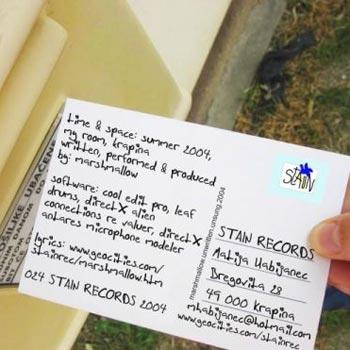 time & space: summer 2004,
my room, krapina
written, performed & produced
by: marshmallow
software: cool edit pro, leaf
drums, directX alien
connections re valver, directX
antares microphone modeler
lyrics: www.geocities.com/
stainrec/marshmallow.htm
024 STAIN RECORDS 2004
marshmallow.unwritten.unsung.2004
STAIN
STAIN RECORDS
Matija Habijanec
Dregovita 28
49 000 Krapina
mhabijanec@hotmail.com
www.geocities.com/stainrec